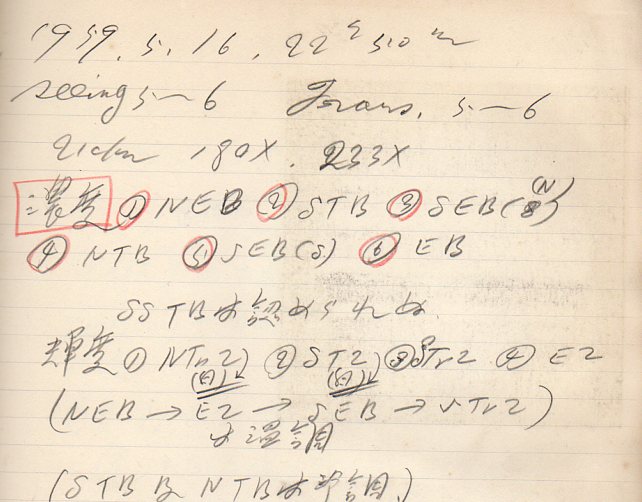 1959. 5. 16. 22h 50m
seeing 5~6 Trans. 5~6
21cm 180X. 233X
濃度 ① NEB ② STB ③ SEB(N)
④ NTB ⑤ SEB(S) ⑥ EB
SSTBは認められぬ.
輝度 ① NTrZ ② STZ ③ STrZ ④ EZ
(NEB → EZ → SEB → STrZ)
は温調
(STB 及 NTBは冷調.)